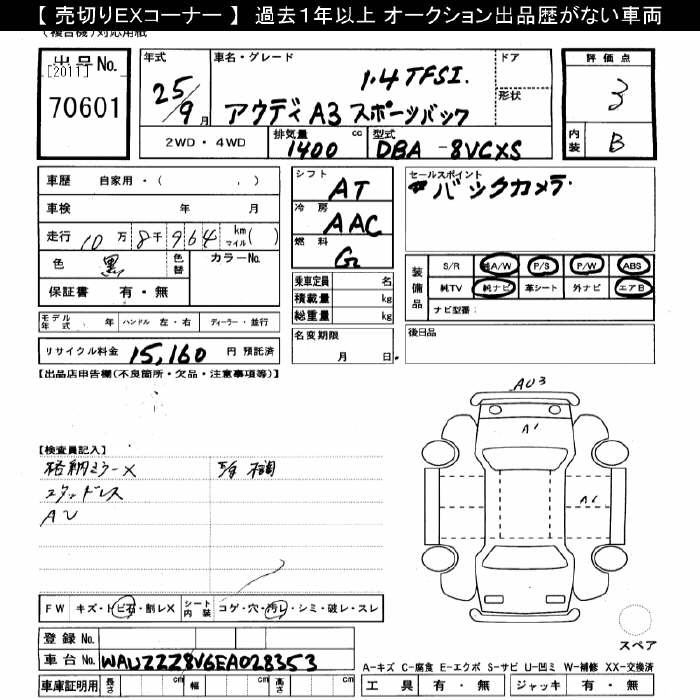 【 売切りEXコーナー 】 過去１年以上 オークション出品歴がない車両
(複合機)対応用紙
出品 No.
[2011]
70601
年式
25/9月
車名・グレード
1.4 TFSI.
アウディ A3 スポーツバック
ドア
形状
評価点
3
内装
B
2WD ・ 4WD
排気量
1400 cc
型式
DBA -8VCXS
車歴 自家用・( , )
車検 年 月
走行 10万 8千 964 km マイル ( )
色 黒 色替 カラーNo.
保証書 有・無
シフト AT
冷房 AAC
燃料 G
乗車定員 名
積載量 kg
総重量 kg
セールスポイント
#バックカメラ
装備品
S/R 純A/W P/S P/W ABS
純TV 純ナビ 革シート 外ナビ エアB
ナビ型番:
モデル年式 年 ハンドル 左・右 ディーラー・並行
名変期限
月 日
後日品
リサイクル料金 15,160 円 預託済
【出品店申告欄(不良箇所・欠品・注意事項等)】
AU3
A1
A1
【検査員記入】
格納ミラーX
スタッドレス
AU
FW キズ・トビ石・割レX シート内装 コゲ・穴・汚レ・シミ・破レ・スレ
スペア
登録 No.
車台 No. WAUZZZ8V6EA028353
A-キズ C-腐食 E-エクボ S-サビ U-凹ミ W-補修 XX-交換済
車庫証明用 長さ cm 幅 cm 高さ cm
工具 有・無 ジャッキ 有・無